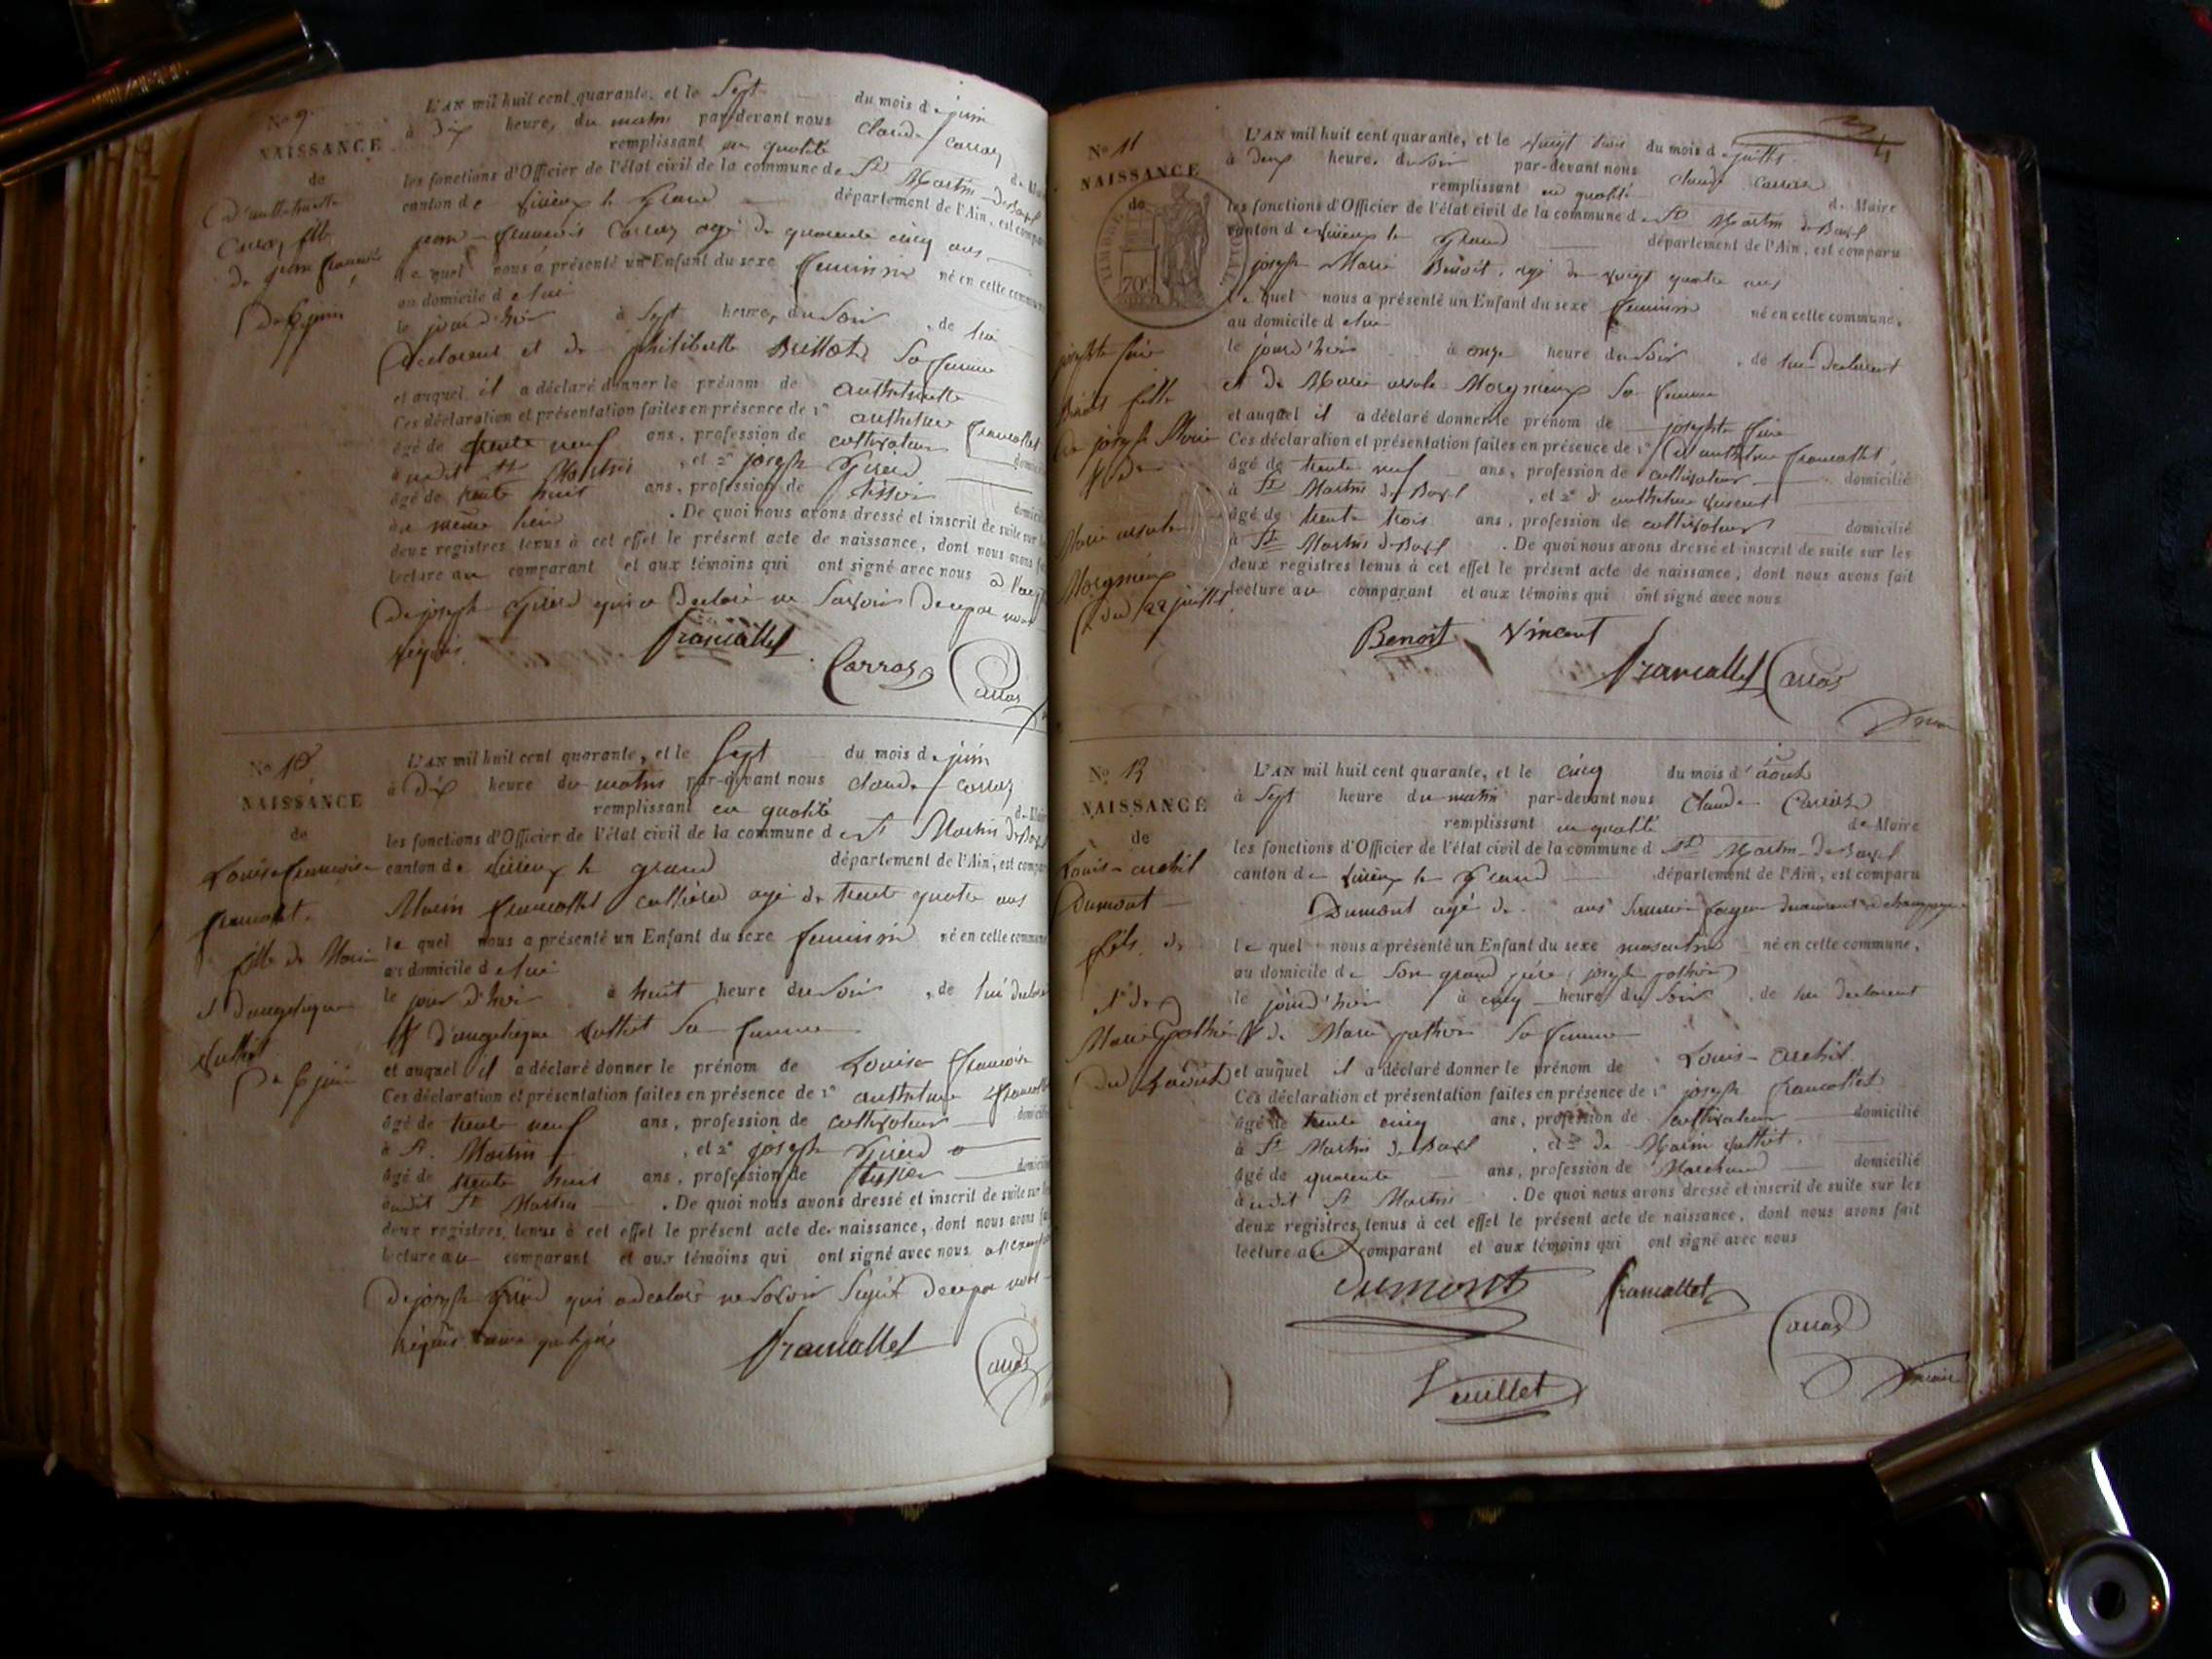 No 9
NAISSANCE
de
Carraz fille
de jean françois
du 6 juin
L'AN mil huit cent quarante, et le Sept du mois de juin
à dix heures du matin par-devant nous Claude Carraz
remplissant en qualité de Maire
les fonctions d'Officier de l'état civil de la commune de St Martin de Bavel
canton de Virieux le Grand département de l'Ain, est comparu
jean-françois Carraz agé de quarante cinq ans
le quel nous a présenté un Enfant du sexe feminin né en cette commune
au domicile de lui
le jour d'hier à Sept heures du Soir, de lui
declarant et de philiberte Brillat Sa femme
et auquel il a déclaré donner le prénom de anthelmette
Ces déclaration et présentation faites en présence de 1° anthelme francallet
âgé de trente neuf ans, profession de cultivateur domicilié
audit St Martin, et 2° joseph
âgé de trente huit ans, profession de tissier domicilié
au même lieu. De quoi nous avons dressé et inscrit de suite sur les
deux registres tenus à cet effet le présent acte de naissance, dont nous avons fait
lecture au comparant et aux témoins qui ont signé avec nous à l'exception
de joseph qui a declaré ne Savoir de ce par nous
requis
francallet
Carraz Carraz
No 10
NAISSANCE
de
Louise françoise
francallet
fille de Marin
et d'angelique
Vuillet
du 6 juin
L'AN mil huit cent quarante, et le Sept du mois de juin
à dix heure du matin par-devant nous Claude Carraz
remplissant en qualité de Maire
les fonctions d'Officier de l'état civil de la commune de St Martin de Bavel
canton de Virieux le grand département de l'Ain, est comparu
Marin francallet agé de trente quatre ans
le quel nous a présenté un Enfant du sexe feminin né en cette commune
au domicile de lui
le jour d'hier à huit heure du Soir, de lui declarant
et d'angelique Vuillet Sa femme
et auquel il a déclaré donner le prénom de Louise françoise
Ces déclaration et présentation faites en présence de 1° anthelme francallet
âgé de trente neuf ans, profession de cultivateur domicilié
à St. Martin, et 2° joseph
âgé de trente huit ans, profession de tissier domicilié
audit St Martin. De quoi nous avons dressé et inscrit de suite sur les
deux registres, tenus à cet effet le présent acte de naissance, dont nous avons fait
lecture au comparant et aux témoins qui ont signé avec nous à l'exception
de joseph qui a declaré ne Savoir Signé de ce par nous
requis
francallet
Carraz
No 11
NAISSANCE
de
TIMBRE ROYAL
70c
josephte
Benoit fille
de joseph Marie
et de
Marie ursule
du 22 juillet
L'AN mil huit cent quarante, et le vingt trois du mois de juillet
à deux heures du soir par-devant nous Claude Carraz
remplissant en qualité de Maire
les fonctions d'Officier de l'état civil de la commune de St Martin de Bavel
canton de Virieux le Grand département de l'Ain, est comparu
joseph Marie Benoit, agé de vingt quatre ans
le quel nous a présenté un Enfant du sexe feminin né en cette commune,
au domicile de lui
le jour d'hier à onze heure du Soir, de lui declarant
et de Marie ursule Sa femme
et auquel il a déclaré donner le prénom de josephte
Ces déclaration et présentation faites en présence de 1° anthelme francallet,
âgé de trente neuf ans, profession de cultivateur domicilié
à St Martin de Bavel, et 2° d'anthelme vincent
âgé de trente trois ans, profession de cultivateur domicilié
à St Martin de Bavel. De quoi nous avons dressé et inscrit de suite sur les
deux registres tenus à cet effet le présent acte de naissance, dont nous avons fait
lecture au comparant et aux témoins qui ont signé avec nous
Benoit Vincent
francallet Carraz
No 12
NAISSANCE
de
Louis
Dumont
fils de
et de
Marie
L'AN mil huit cent quarante, et le cinq du mois d'août
à Sept heure du matin par-devant nous Claude Carraz
remplissant en qualité de Maire
les fonctions d'Officier de l'état civil de la commune de St Martin de Bavel
canton de Virieux le Grand département de l'Ain, est comparu
Dumont agé de ans
le quel nous a présenté un Enfant du sexe masculin né en cette commune,
au domicile de Son grand père joseph
le jour d'hier à cinq heure du Soir, de lui declarant
et de Marie Sa femme
et auquel il a déclaré donner le prénom de Louis
Ces déclaration et présentation faites en présence de 1° joseph francallet
âgé de trente cinq ans, profession de cultivateur domicilié
à St Martin de Bavel, et 2° de Marin Vuillet.
âgé de quarante ans, profession de Marchand domicilié
audit St Martin. De quoi nous avons dressé et inscrit de suite sur les
deux registres tenus à cet effet le présent acte de naissance, dont nous avons fait
lecture au comparant et aux témoins qui ont signé avec nous
Dumont francallet
Carraz
Vuillet